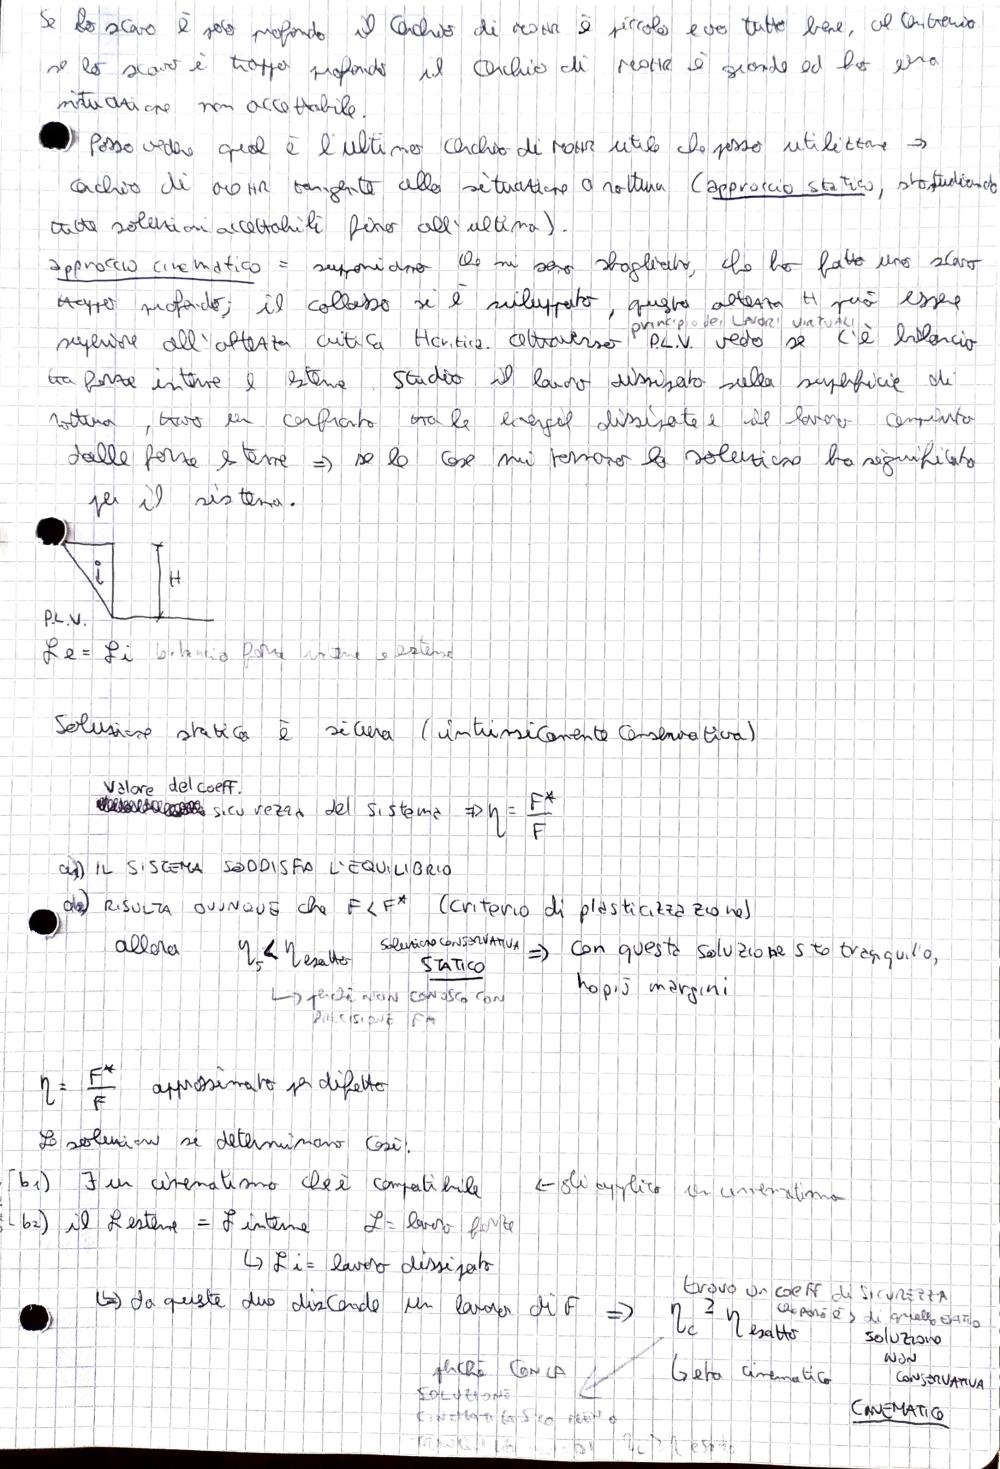 Se lo scavo è poco profondo il cerchio di MOHR è piccolo e va tutto bene, al contrario
se lo scavo è troppo profondo il cerchio di MOHR è grande ed ho una
situazione non accettabile.
Posso vedere qual è l'ultimo cerchio di MOHR utile che posso utilizzare ⇒
cerchio di MOHR tangente alla situazione a rottura (approccio statico, sto studiando
tutte soluzioni accettabili fino all'ultima).
approccio cinematico = supponiamo che mi sono sbagliato, che ho fatto uno scavo
troppo profondo; il collasso si è sviluppato, questa altezza H può essere
principio dei LAVORI VIRTUALI
superiore all'altezza critica Hcritica. attraverso P.L.V. vedo se c'è bilancio
tra forze interne e esterne. Studio il lavoro dissipato sulla superficie di
rottura, trovo un confronto tra le energie dissipate e il lavoro compiuto
dalle forze esterne ⇒ se le cose mi tornano la soluzione ha significato
per il sistema.
i
H
P.L.V.
Le = Li bilancio forze interne e esterne
Soluzione statica è sicura (intrinsicamente conservativa)
Valore del coeff.
sicurezza del sistema ⇒ η = F*/F
a1) IL SISTEMA SODDISFA L'EQUILIBRIO
a2) RISULTA OVUNQUE che F<F* (criterio di plasticizzazione)
allora ηs < ηesatto soluzione CONSERVATIVA STATICO ⇒ con questa soluzione sto tranquillo,
ho più margini
↳ perché NON CONOSCO CON
PRECISIONE
η = F*/F approssimato per difetto
Le soluzioni si determinano così:
(b1) ∃ un cinematismo che è compatibile ← gli applico un cinematismo
(b2) il L esterne = L interne L = lavoro forze
↳ Li = lavoro dissipato
↳ da queste due discende un lavoro di F ⇒ ηc ≥ ηesatto
trovo un coeff di SICUREZZA
che però è > di quello esatto
SOLUZIONE
NON
CONSERVATIVA
CINEMATICO
↳ eta cinematico
perché CON LA
SOLUZIONE